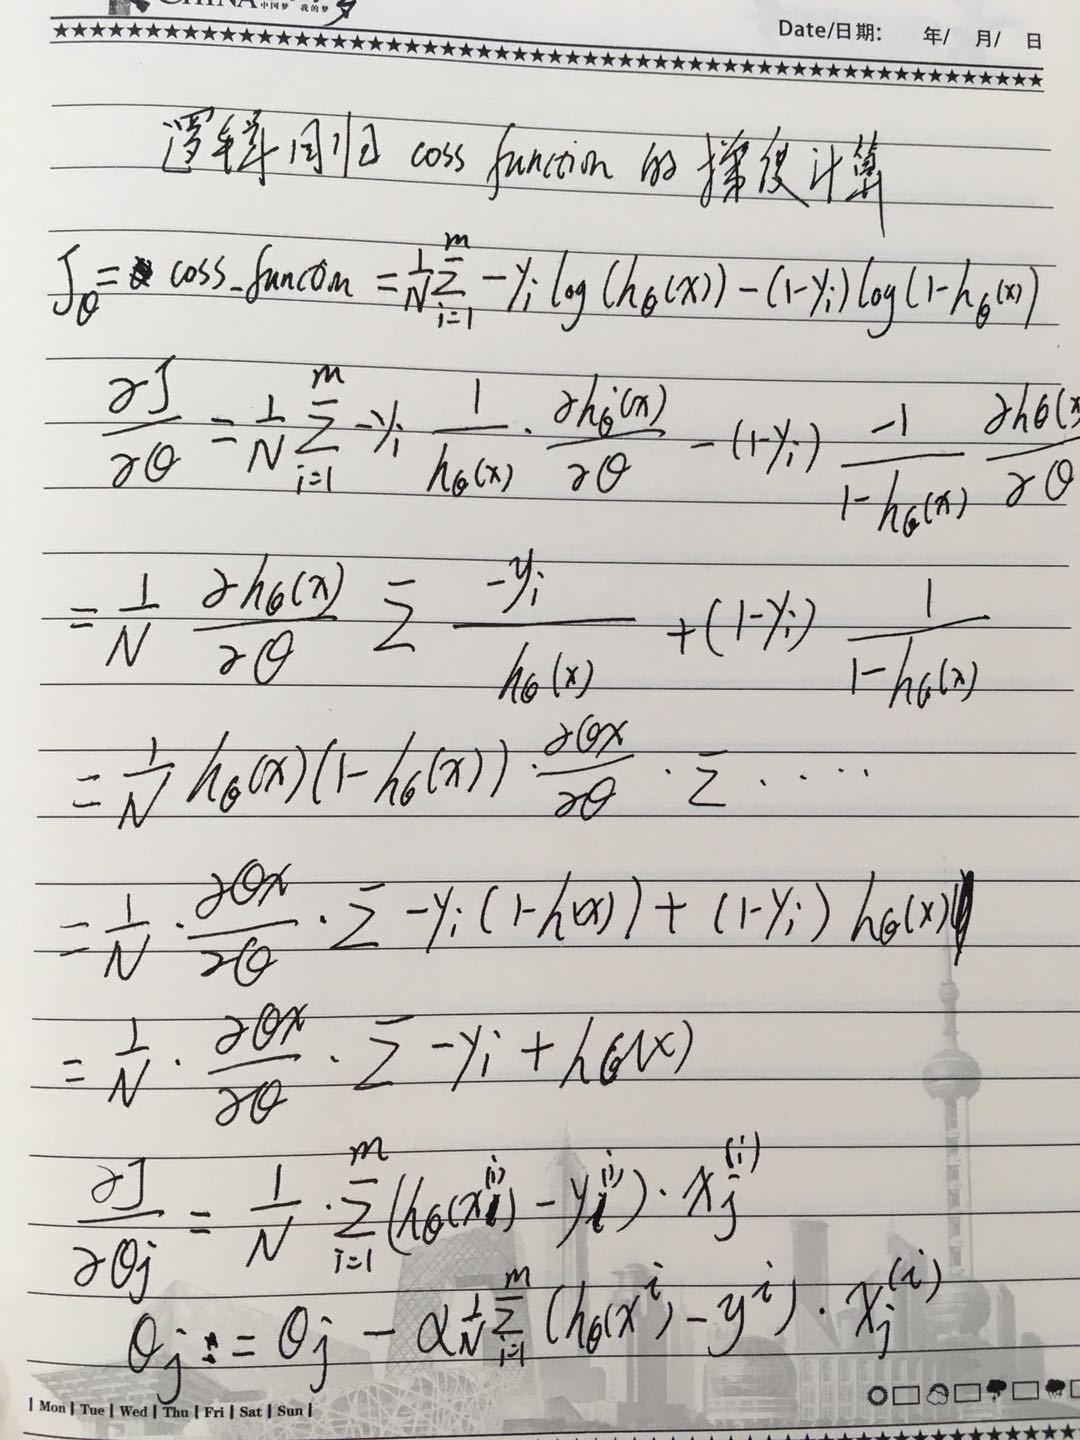 CHINA 中国梦 我的梦
Date/日期: 年/ 月/ 日
逻辑回归 coss function 的梯度计算
J_θ = coss_functon = 1/N Σ_{i=1}^{m} -y_i log(h_θ(x)) - (1-y_i) log(1-h_θ(x)
∂J/∂θ = 1/N Σ_{i=1}^{m} -y_i 1/h_θ(x) · ∂h_θ(x)/∂θ - (1-y_i) -1/1-h_θ(x) ∂hθ(x/∂θ
= 1/N ∂h_θ(x)/∂θ Σ -y_i/h_θ(x) + (1-y_i) 1/1-h_θ(x)
= 1/N h_θ(x)(1-h_θ(x)) · ∂θx/∂θ · Σ · · · ·
= 1/N · ∂θx/∂θ · Σ -y_i(1-h(x)) + (1-y_i) h_θ(x)
= 1/N · ∂θx/∂θ · Σ -y_i + h_θ(x)
∂J/∂θj = 1/N · Σ_{i=1}^{m} (h_θ(x^{(i)}) - y^{(i)}) · x_j^{(i)}
θ_j := θ_j - α 1/N Σ_{i=1}^{m} (h_θ(x^i) - y^i) · x_j^{(i)}
| Mon | Tue | Wed | Thu | Fri | Sat | Sun |